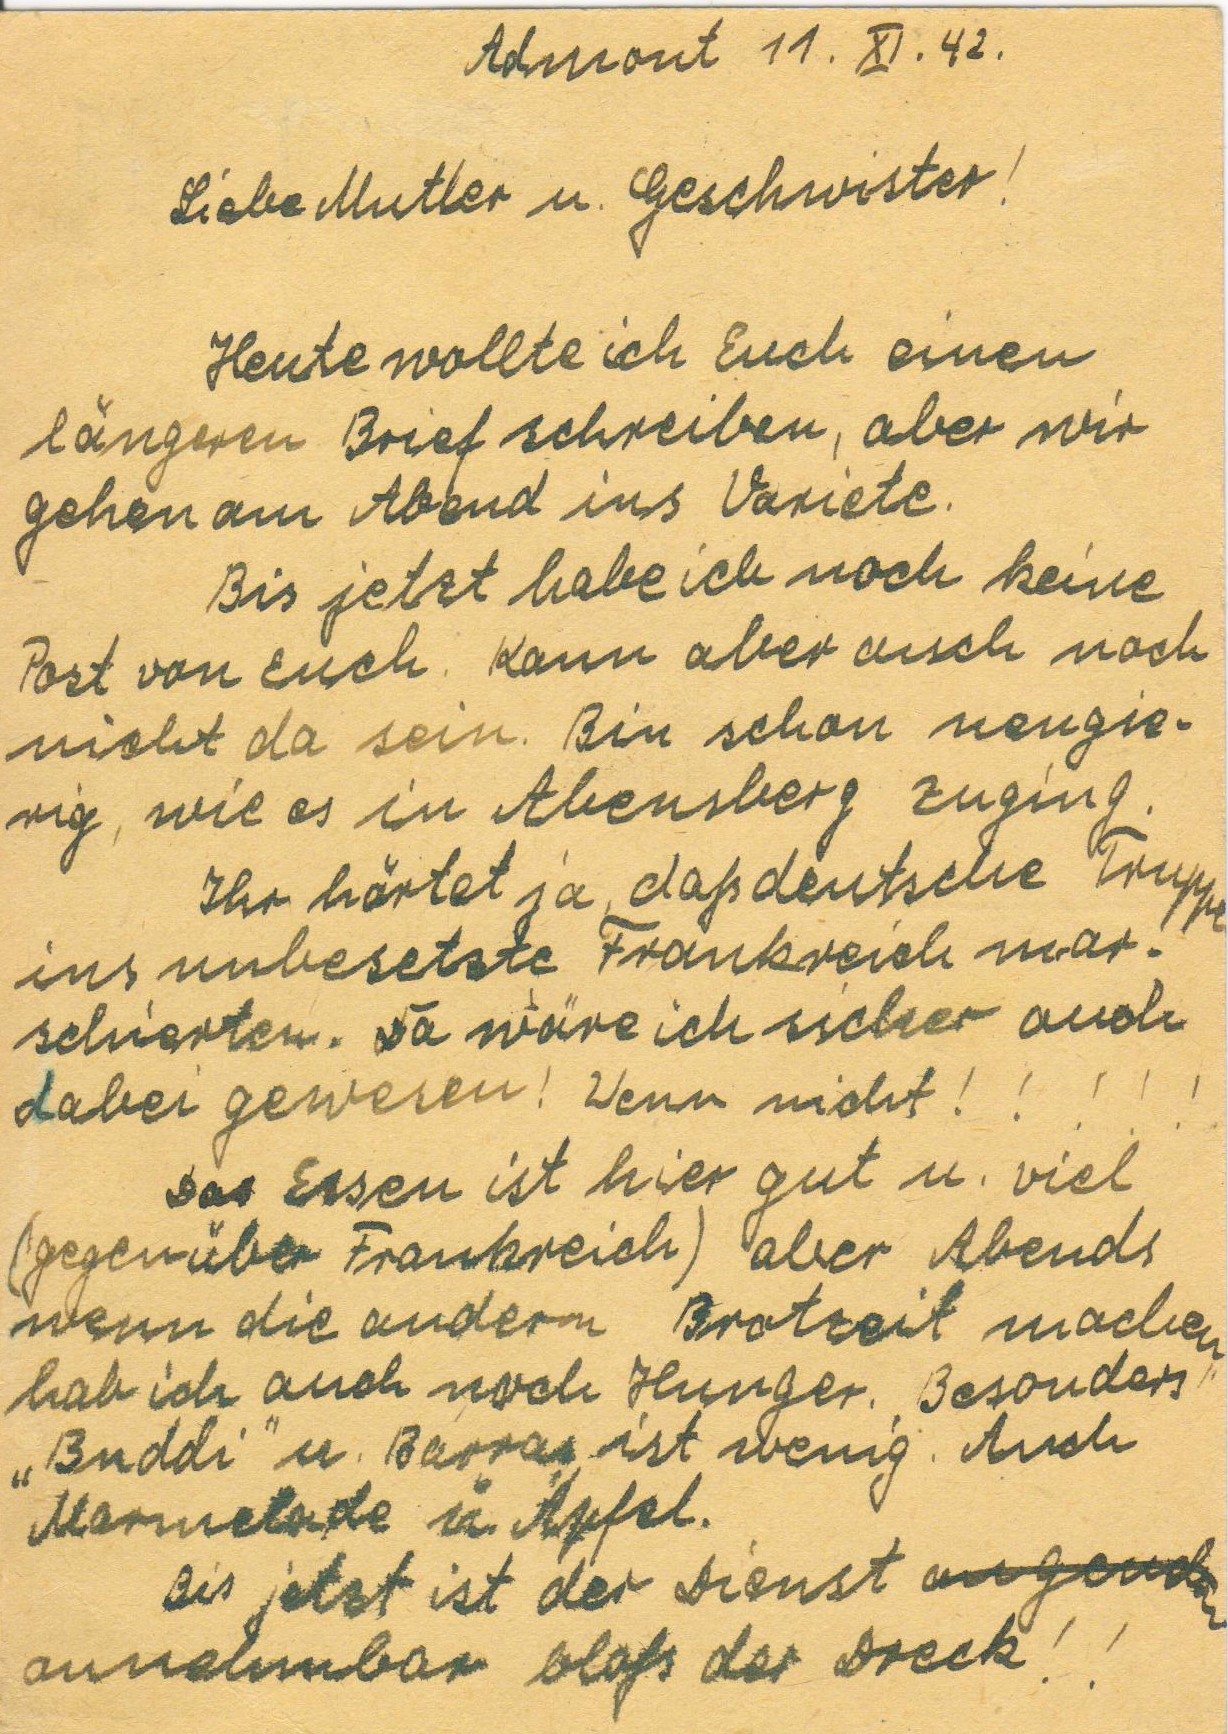 Admont 11. XI. 42.
Liebe Mutter u. Geschwister!
Heute wollte ich Euch einen
längeren Brief schreiben, aber wir
gehen am Abend ins Variete.
Bis jetzt habe ich noch keine
Post von Euch. Kann aber auch noch
nicht da sein. Bin schon neugie-
rig, wie es in Abensberg zuging.
Ihr hörtet ja, daß deutsche Truppe
ins unbesetzte Frankreich mar-
schierten. Da wäre ich sicher auch
dabei gewesen! Wenn nicht! ! ! ! !
Das Essen ist hier gut u. viel
(gegenüber Frankreich) aber Abends
wenn die andern Brotzeit machen
hab ich auch noch Hunger. Besonders
„Buddi" u. Barras ist wenig. Auch
Marmelade u. Äpfel.
Bis jetzt ist der Dienst
annehmbar blaß der Dreck! !